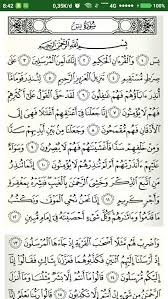 8:42 0,35K/d 4G
سُورَةُ يسٓ
بِسْمِ اللَّهِ الرَّحْمَٰنِ الرَّحِيمِ
يسٓ ١ وَالْقُرْءَانِ الْحَكِيمِ ٢ إِنَّكَ لَمِنَ الْمُرْسَلِينَ ٣ عَلَىٰ
صِرَٰطٍ مُّسْتَقِيمٍ ٤ تَنزِيلَ الْعَزِيزِ الرَّحِيمِ ٥ لِتُنذِرَ قَوْمًا
مَّآ أُنذِرَ ءَابَآؤُهُمْ فَهُمْ غَٰفِلُونَ ٦ لَقَدْ حَقَّ الْقَوْلُ عَلَىٰٓ
أَكْثَرِهِمْ فَهُمْ لَا يُؤْمِنُونَ ٧ إِنَّا جَعَلْنَا فِىٓ أَعْنَٰقِهِمْ أَغْلَٰلًا
فَهِىَ إِلَى الْأَذْقَانِ فَهُم مُّقْمَحُونَ ٨ وَجَعَلْنَا مِنۢ بَيْنِ أَيْدِيهِمْ سَدًّا
وَمِنْ خَلْفِهِمْ سَدًّا فَأَغْشَيْنَٰهُمْ فَهُمْ لَا يُبْصِرُونَ ٩
وَسَوَآءٌ عَلَيْهِمْ ءَأَنذَرْتَهُمْ أَمْ لَمْ تُنذِرْهُمْ لَا يُؤْمِنُونَ ١٠ إِنَّمَا تُنذِرُ
مَنِ اتَّبَعَ الذِّكْرَ وَخَشِىَ الرَّحْمَٰنَ بِالْغَيْبِ فَبَشِّرْهُ بِمَغْفِرَةٍ
وَأَجْرٍ كَرِيمٍ ١١ إِنَّا نَحْنُ نُحْىِ الْمَوْتَىٰ وَنَكْتُبُ مَا قَدَّمُوا۟
وَءَاثَٰرَهُمْ وَكُلَّ شَىْءٍ أَحْصَيْنَٰهُ فِىٓ إِمَامٍ مُّبِينٍ ١٢
وَاضْرِبْ لَهُم مَّثَلًا أَصْحَٰبَ الْقَرْيَةِ إِذْ جَآءَهَا الْمُرْسَلُونَ ١٣
إِذْ أَرْسَلْنَآ إِلَيْهِمُ اثْنَيْنِ فَكَذَّبُوهُمَا فَعَزَّزْنَا بِثَالِثٍ فَقَالُوٓا۟
إِنَّآ إِلَيْكُم مُّرْسَلُونَ ١٤ قَالُوا۟ مَآ أَنتُمْ إِلَّا بَشَرٌ مِّثْلُنَا